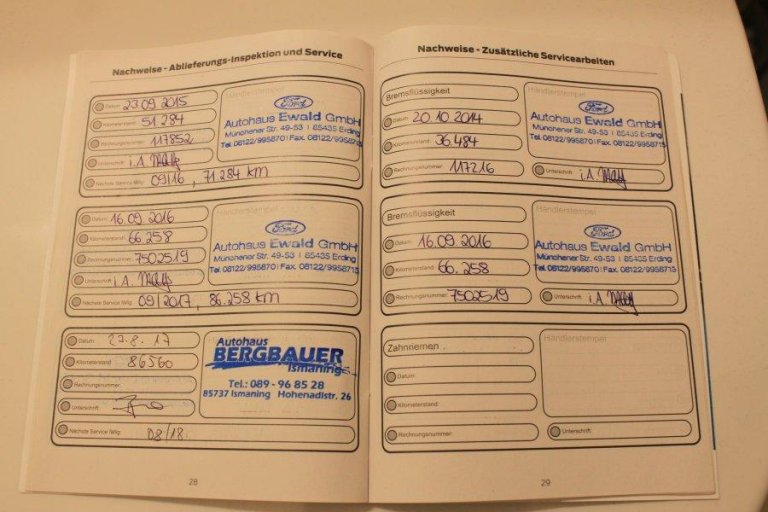 Nachweise - Ablieferungs-Inspektion und Service
Datum: 23.09 2015
Kilometerstand: 51.284
Rechnungsnummer: 117852
Unterschrift: i.A.
Nächste Service fällig: 09/16, 71.284 km
Händlerstempel
Ford
Autohaus Ewald GmbH
Münchener Str. 49-53 | 85435 Erding
Tel. 08122/995870 | Fax. 08122/9958715
Datum: 16.09 2016
Kilometerstand: 66 258
Rechnungsnummer: 7502519
Unterschrift: i.A.
Nächste Service fällig: 09/2017, 86.258 km
Händlerstempel
Ford
Autohaus Ewald GmbH
Münchener Str. 49-53 | 85435 Erding
Tel. 08122/995870 | Fax. 08122/9958715
Datum: 23.8. 17
Kilometerstand: 86560
Rechnungsnummer:
Unterschrift:
Nächste Service fällig: 08/18.
Autohaus
BERGBAUER
Ismaning
Tel.: 089 - 96 85 28
85737 Ismaning Hohenadlstr. 26
28
Nachweise - Zusätzliche Servicearbeiten
Bremsflüssigkeit
Datum: 20 10 2014
Kilometerstand: 36.484
Rechnungsnummer: 117216
Händlerstempel
Ford
Autohaus Ewald GmbH
Münchener Str. 49-53 | 85435 Erding
Tel. 08122/995870 | Fax. 08122/9958715
Unterschrift: i.A.
Bremsflüssigkeit
Datum: 16.09 2016
Kilometerstand: 66. 258
Rechnungsnummer: 7502519
Händlerstempel
Ford
Autohaus Ewald GmbH
Münchener Str. 49-53 | 85435 Erding
Tel. 08122/995870 | Fax. 08122/9958715
Unterschrift: i.A.
Zahnriemen
Datum:
Kilometerstand:
Rechnungsnummer:
Händlerstempel
Unterschrift:
29